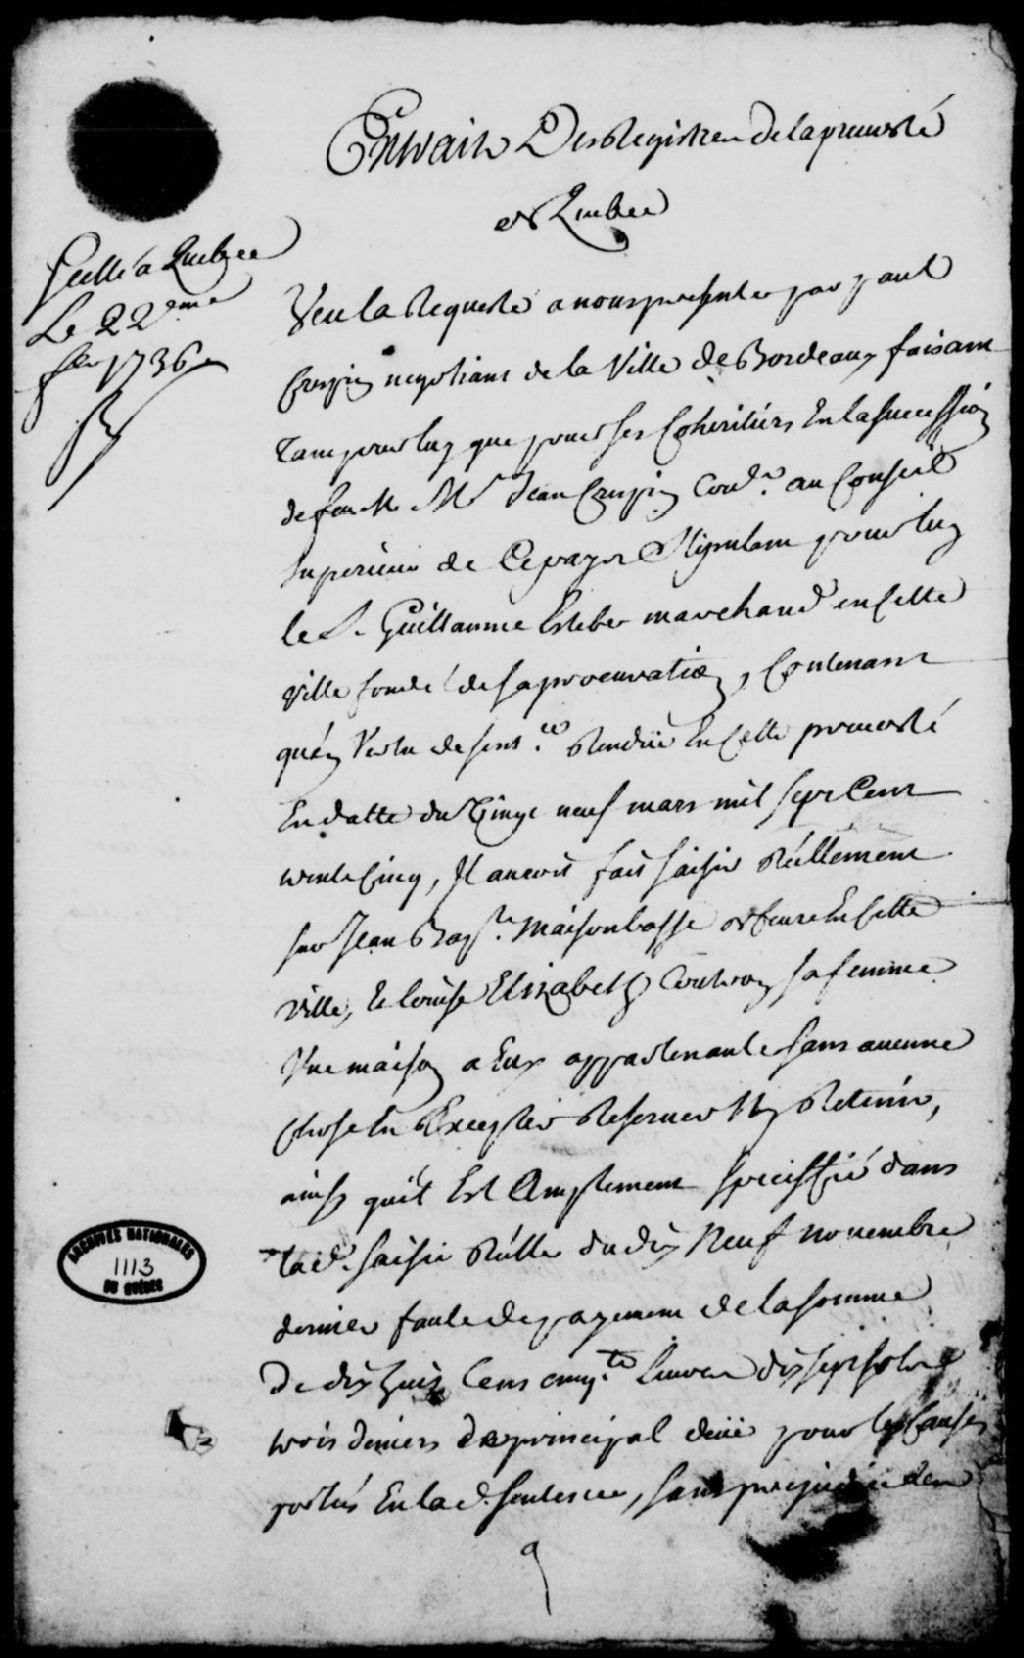 Extrait Des Registres de la prevosté
de Quebec
Scellé a Quebec
Le 22eme
fer 1736
Veu la Requeste a nous presentée par paul
Crespin negotiant de la Ville de Bordeaux faisant
tant pour luy que pour ses Coheritiers En la succession
de feu Mr Jean Crespin Conser au Conseil
Superieur de Ce pays Stipulant pour luy
le S. Guillaume Estebe marchand en cette
ville fondé de sa procuration, Contenant
qu'en Vertu de sentce Rendüe En Cette prevosté
En datte du Vingt neuf mars mil sept Cent
trente Cinq, Il auroit fait saisir Réellement
sur Jean Bapte Maisonbasse orfeure En Cette
Ville, et Louise Elizabeth Coutron sa femme
Une maison a Eux appartenante sans aucune
Chose En Excepter Reserver Ny Retenir,
ainsy qu'il Est Amplement speciffié dans
lad. saisie Réelle du dix Neuf novembre
dernier faute de payement de la somme
De dix huit Cens cinqte Livres dix sept sols
trois deniers de principal deüe pour les Causes
portées En lad. sentence, sans prejudice des
ARCHIVES NATIONALES
1113
DU QUÉBEC